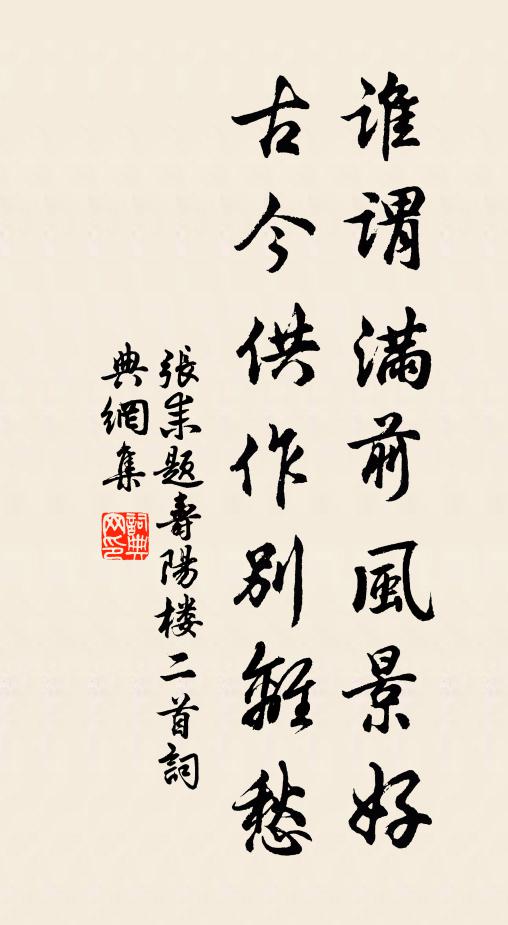 誰謂滿前風景好
古今供作別離愁
張耒題壽陽楼二首詞
典網集
詞典
网印